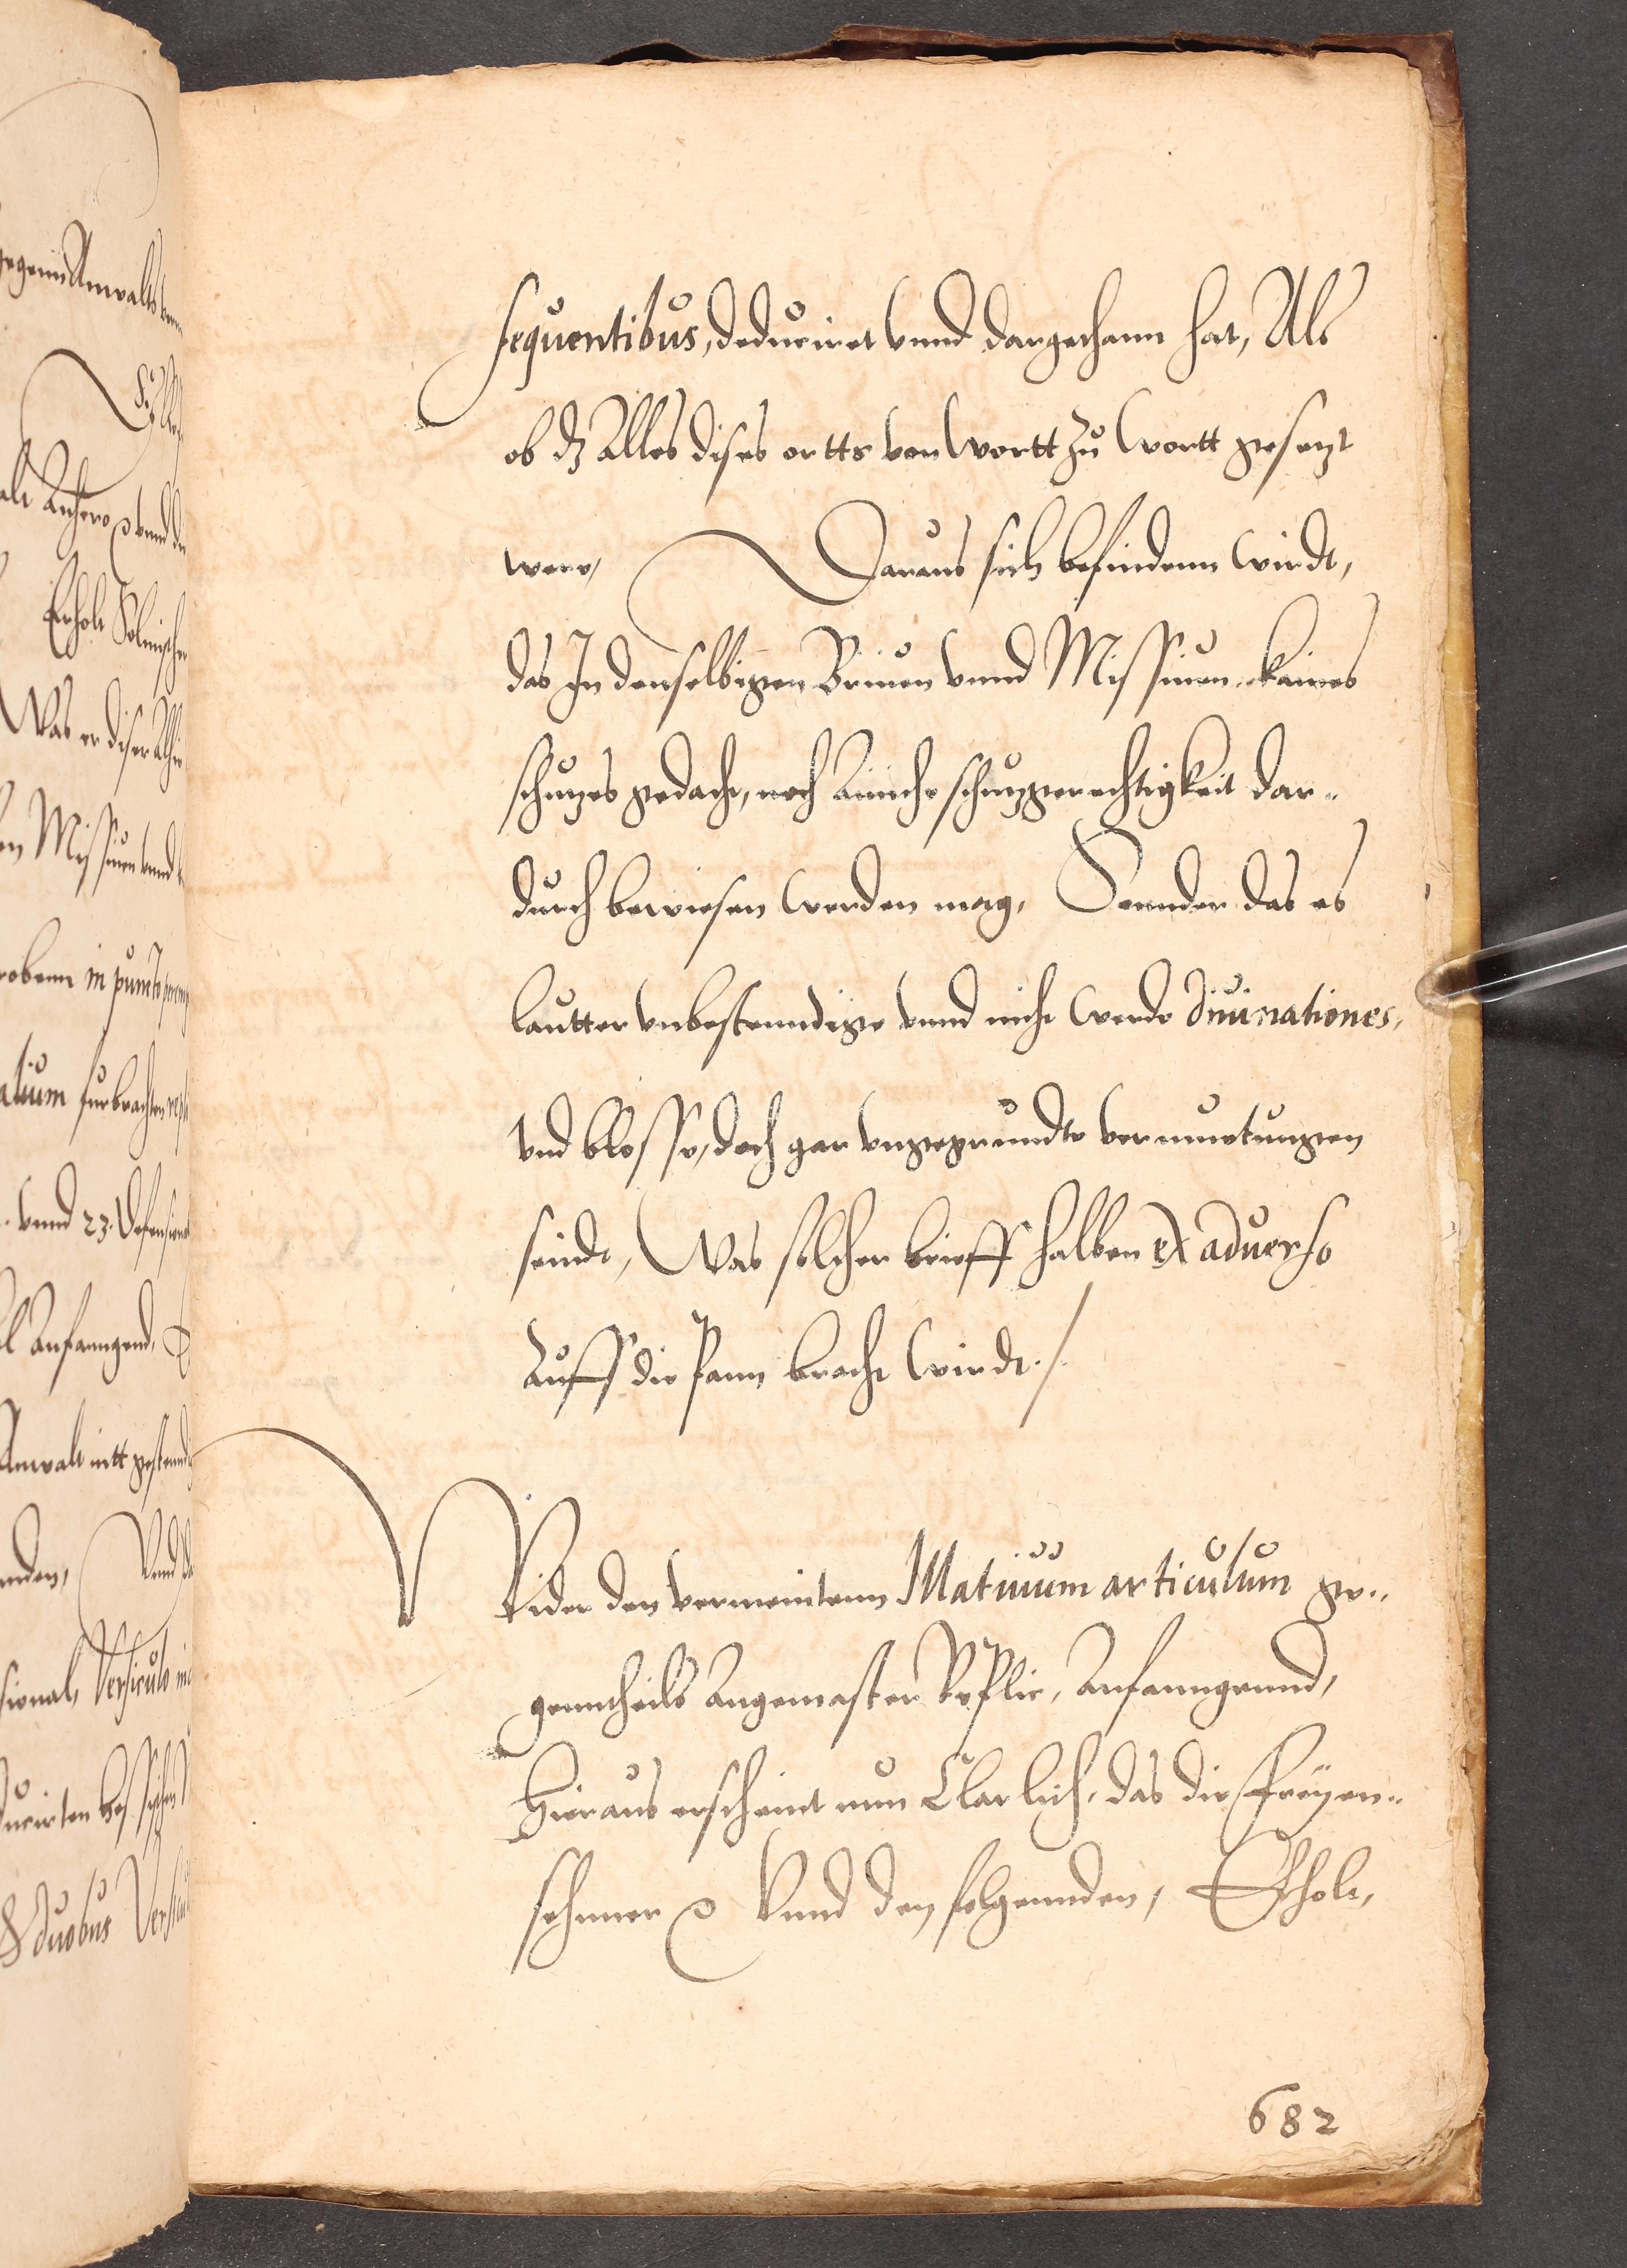 sequentibus, deduciret vnnd dargethann hat, Als
ob dz Alles dises ortts von Wortt zu Wortt gesetzt
were, Daraus sich befindenn wirdt,
das In denselbigen Brieuen vnnd Missiuen, kaines
schutzes gedacht, noch Ainiche schutzgerechtigkeit dar„
durch bewiesen werden mag, Sonnder das es
lautter vnbestenndige vnnd nicht werde diuinationes,
vnd blosse, doch gar vngegrundte vermuetungen
seindt, Was solcher brieff halben ex aduerso
Auff die pann bracht wirdt./.
Wider den vermeintenn Matiuum articulum ge„
genntheils Angemaster Replic, Anfanngennd,
Hieraus erscheint nun Clarlich, das die Freyen„
sehmer &c Vnnd den folgennden, Erholt,
682
gegenn Anwalts
Was er diser
Missiuen vnnd
in puncto
furbrachten
vnnd 23. Defensional
Anfanngend,
Anwalt nitt
sional, Versiculo
duobus